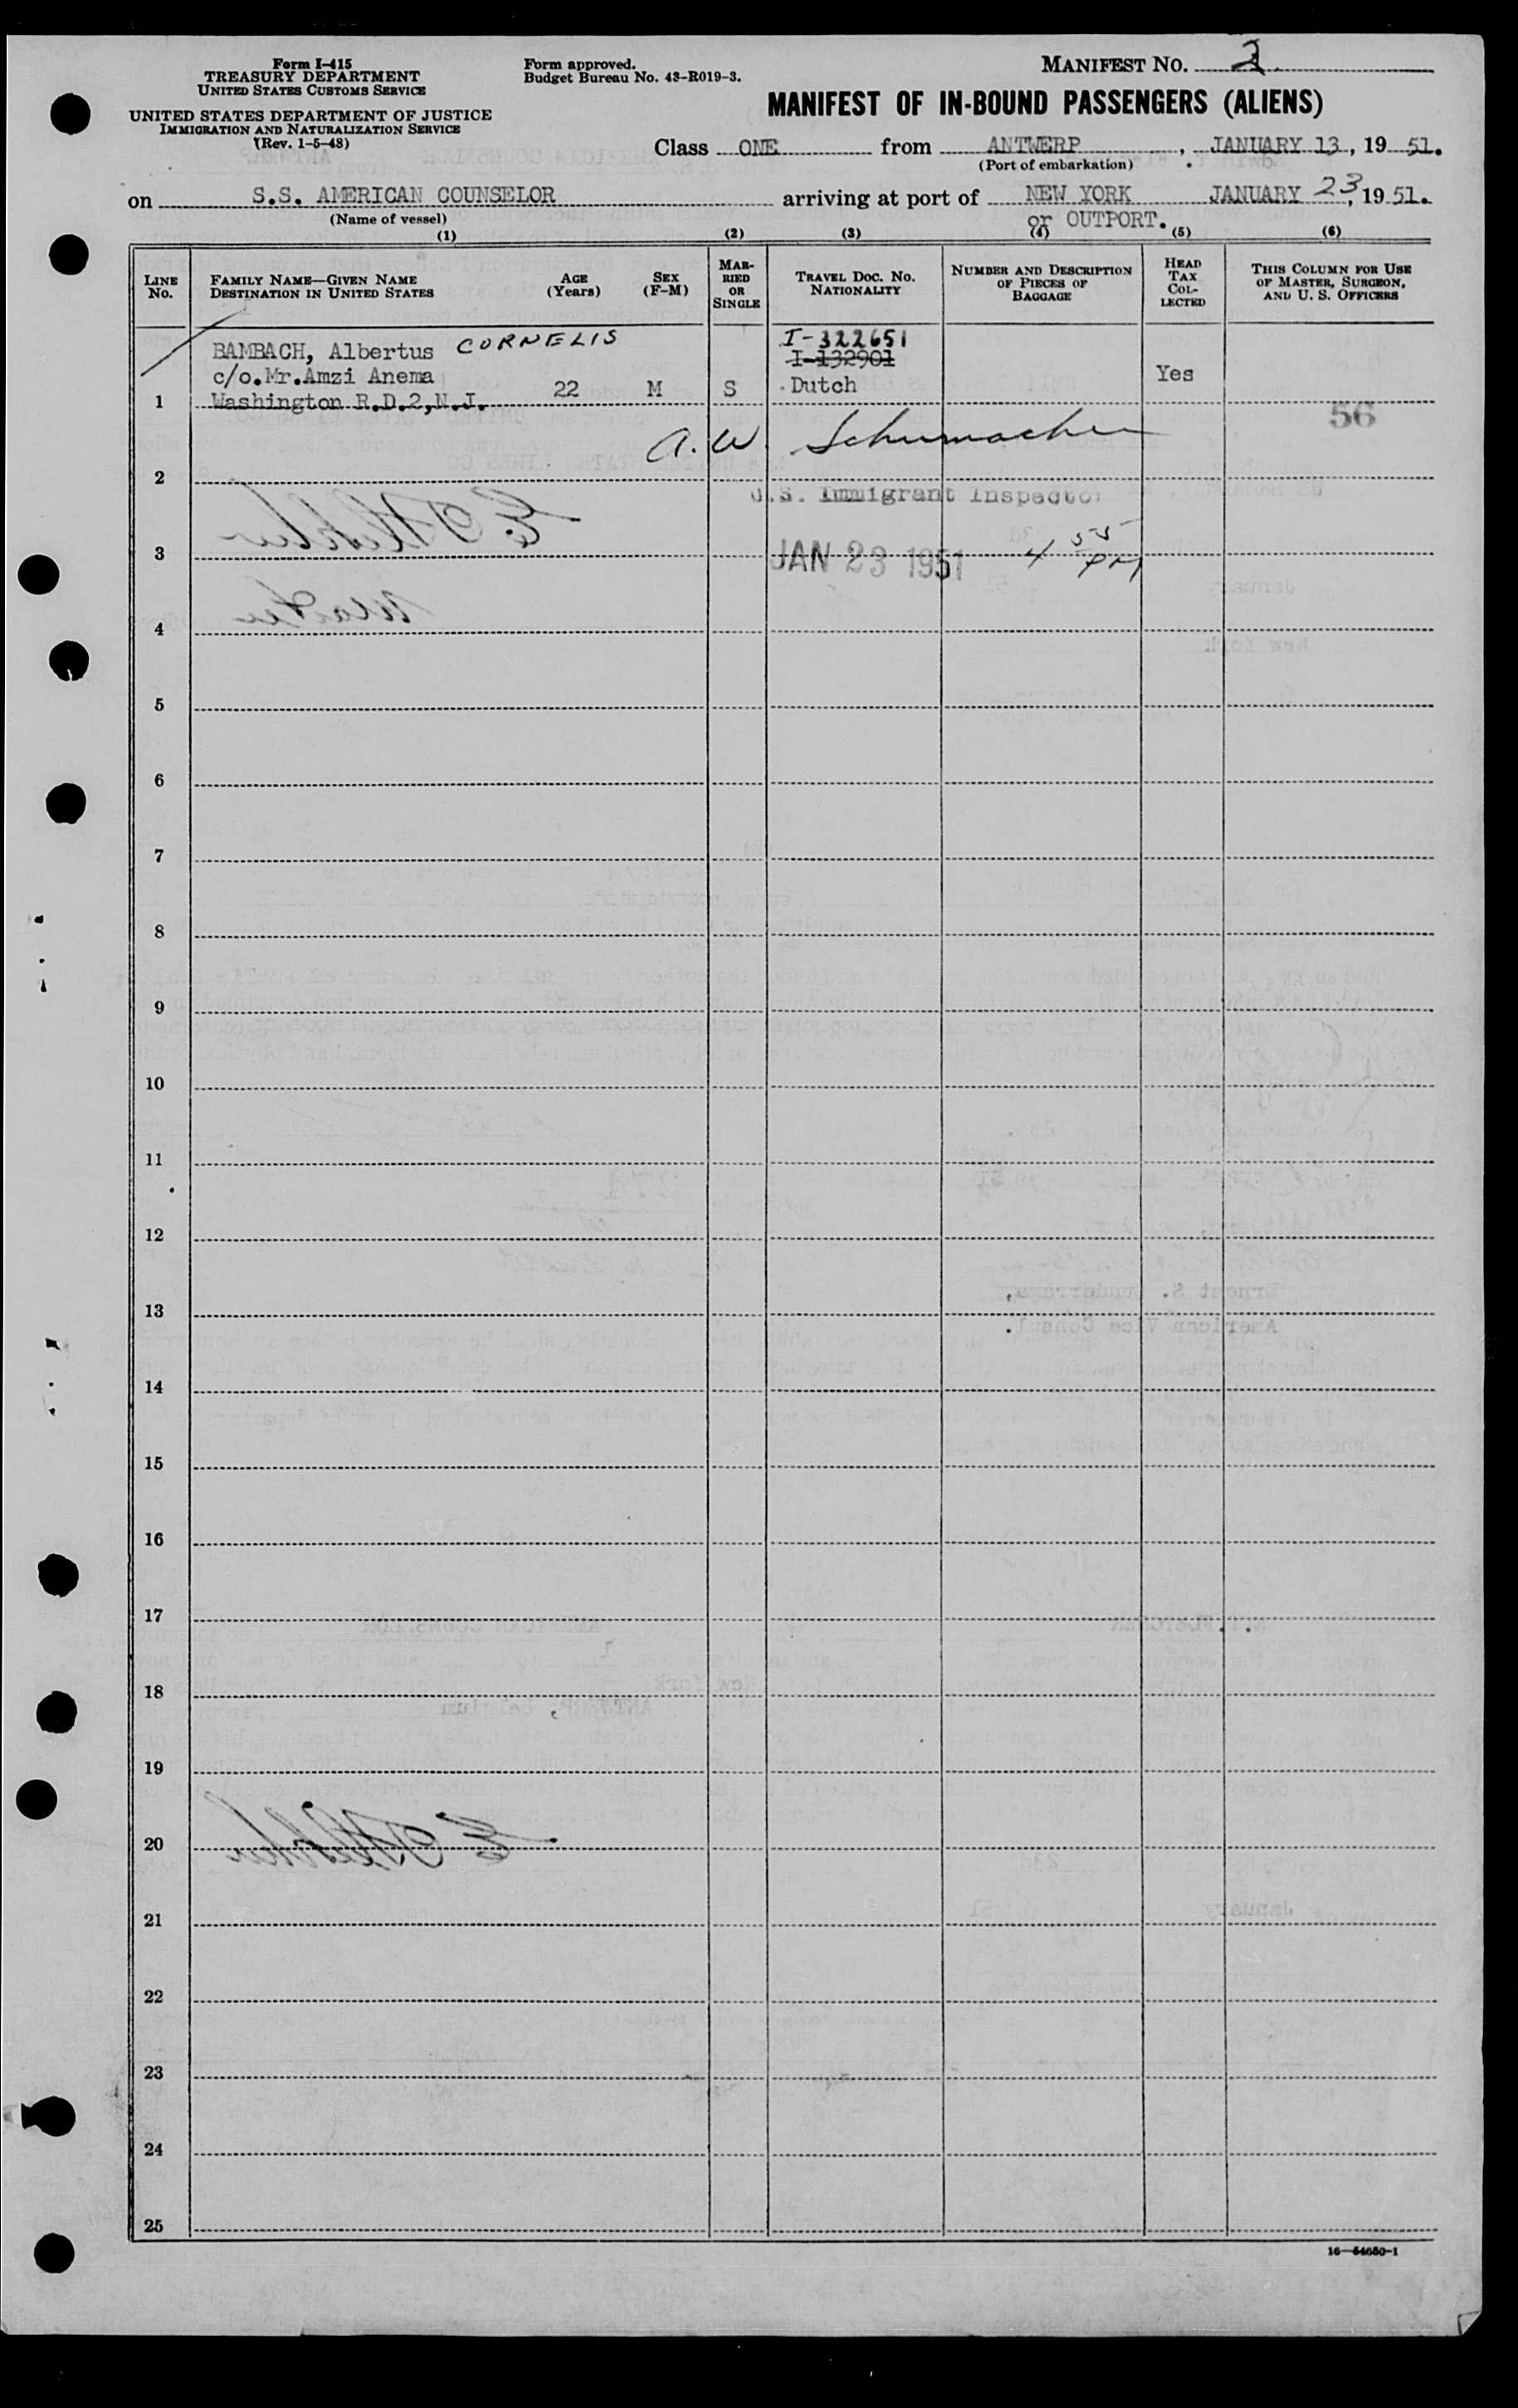 Form I-415
TREASURY DEPARTMENT
UNITED STATES CUSTOMS SERVICE
UNITED STATES DEPARTMENT OF JUSTICE
IMMIGRATION AND NATURALIZATION SERVICE
(Rev. 1-5-48)
Form approved.
Budget Bureau No. 43-R019-3.
MANIFEST NO. 2
MANIFEST OF IN-BOUND PASSENGERS (ALIENS)
Class ONE from ANTWERP, JANUARY 13, 19 51.
(Port of embarkation)
on S.S. AMERICAN COUNSELOR arriving at port of NEW YORK JANUARY 23, 19 51.
(Name of vessel) or OUTPORT.
(1) (2) (3) (4) (5) (6)
LINE No. FAMILY NAME—GIVEN NAME DESTINATION IN UNITED STATES AGE (Years) SEX (F-M) MARRIED OR SINGLE TRAVEL DOC. NO. NATIONALITY NUMBER AND DESCRIPTION OF PIECES OF BAGGAGE HEAD TAX COLLECTED THIS COLUMN FOR USE OF MASTER, SURGEON, AND U. S. OFFICERS
I-322651
BAMBACH, Albertus CORNELIS I-132901
c/o.Mr.Amzi Anema 22 M S Dutch Yes
1 Washington R.D.2,N.J.
56
A. W. Schumacher
2
U.S. Immigrant Inspector
3 JAN 23 1951 4 55 PM
4
5
6
7
8
9
10
11
12
13
14
15
16
17
18
19
20
21
22
23
24
25
16—54650-1